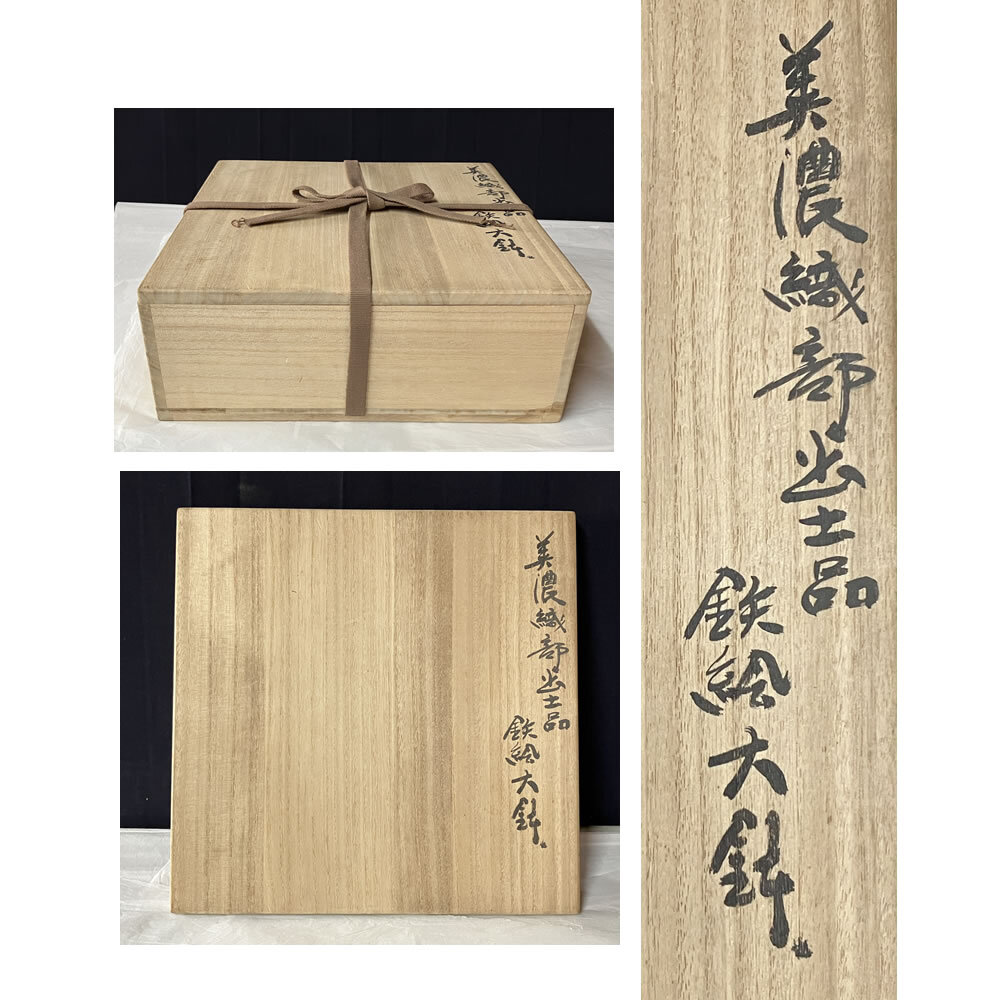 美濃織部出土品
鉄絵大鉢
美濃織部出土品
鉄絵大鉢
美濃織部出土品
鉄絵大鉢